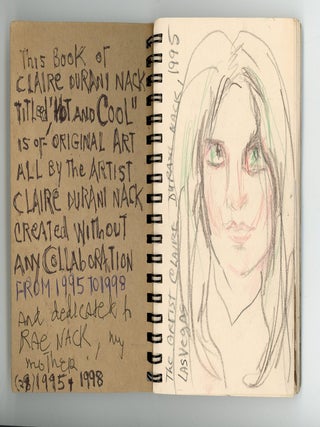 This Book of
CLAIRE DURANI NACK
Titled "HOT AND COOL"
is of ORIGINAL ART
ALL By THE ARTIST
CLAIRE DURANI NACK
CREATED WITHOUT
ANY COLLABORATION
FROM 1995 TO 1998
And dedicated to
RAE NACK, my
mother
1995 + 1998
THE ARTIST CLAIRE DURANI NACK, 1995
LAS VEGAS